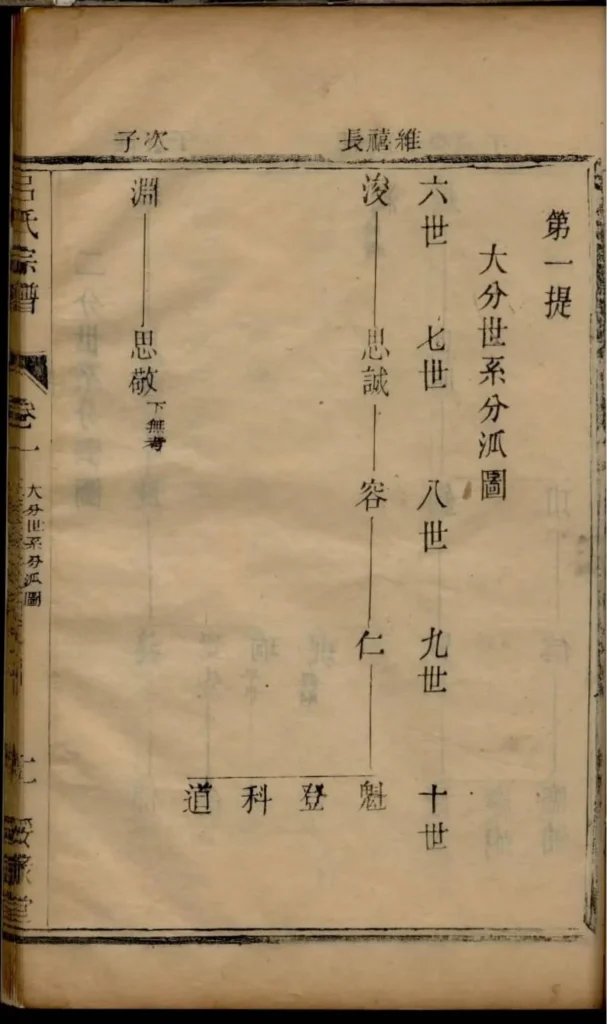 維禧長
次子
第一提
大分世系分派圖
六世
七世
八世
九世
十世
浚
思誠
容
仁
魁
登
科
道
淵
思敬
下無考
呂氏宗譜
卷一
大分世系分派圖